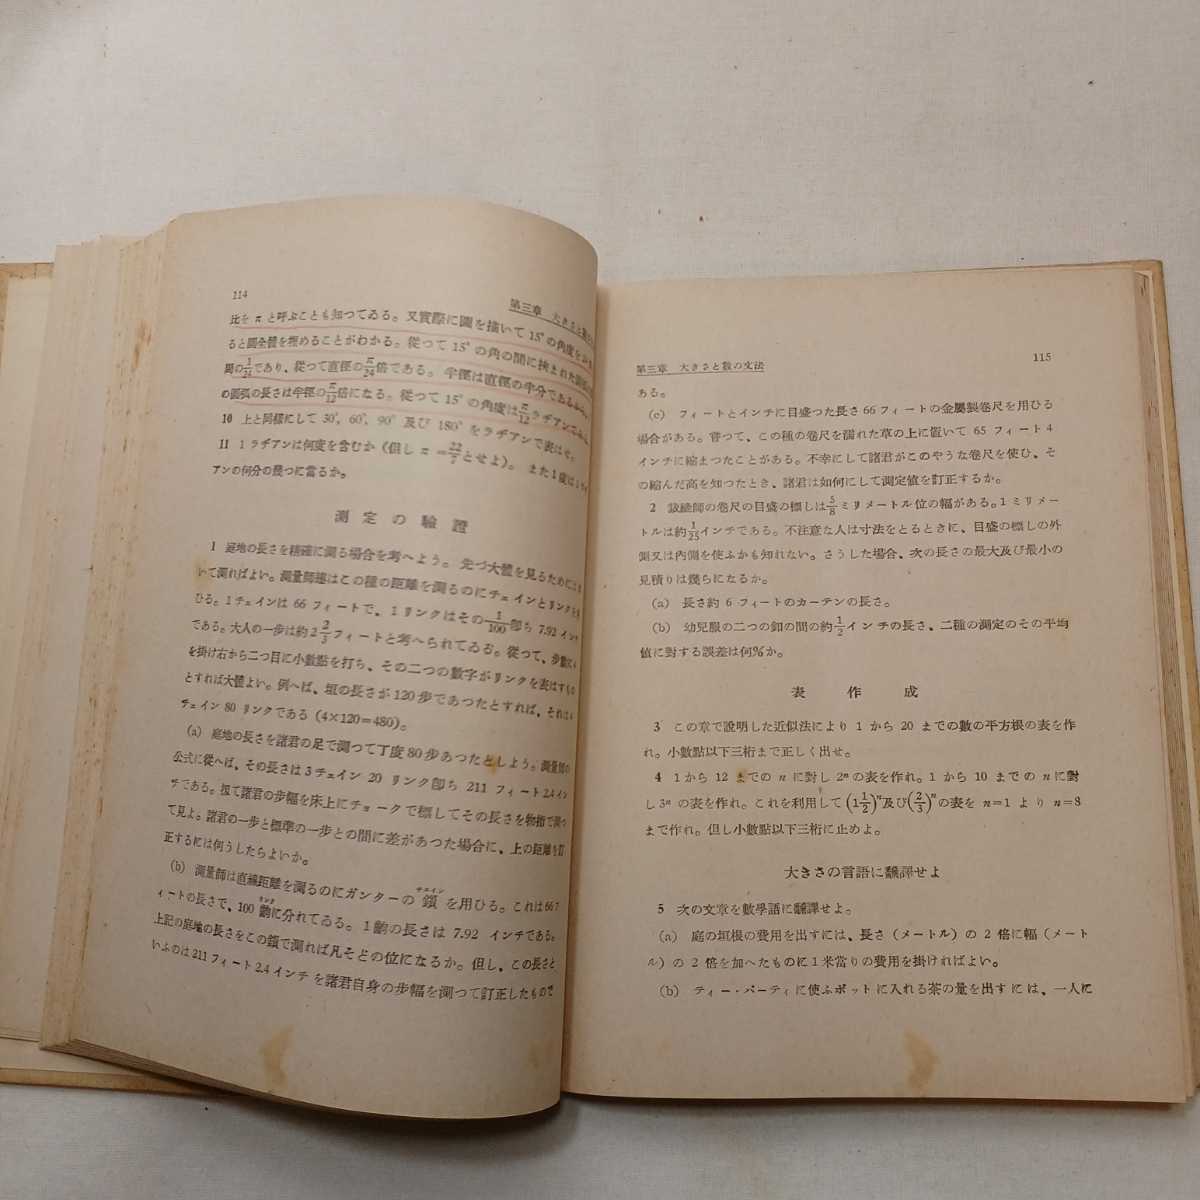 114
第三章 大きさと數
比を π と呼ぶことも知つてゐる。又實際に圓を描いて 15° の角度を
ると圓全體を埋めることがわかる。從つて 15° の角の間に挾まれた圓弧
周の1/24であり、從つて直徑のπ/24倍である。半徑は直徑の半分であるから、
の圓弧の長さは半徑のπ/12倍になる。從つて 15° の角度はπ/12ラヂアンである。
10 上と同樣にして 30°, 60°, 90° 及び 180° をラヂアンで表はせ。
11 1 ラヂアンは何度を含むか (但し π =22/7とせよ)。また 1 度は 1 ラヂ
アンの何分の幾つに當るか。
測定の驗證
1 庭地の長さを精確に測る場合を考へよう。先づ大體を見るために
いて測ればよい。測量師達はこの種の距離を測るのにチェインとリンクを用
ひる。1 チェインは 66 フィートで、1 リンクはその1/100卽ち 7.92 インチ
である。大人の一歩は約 2 2/3 フィートと考へられてゐる。從つて、歩數に 4
を掛け右から二つ目に小數點を打ち、その二つの數字がリンクを表はすもの
とすれば大體よい。例へば、垣の長さが 120 歩であつたとすれば、それは 4
チェイン 80 リンクである (4×120=480)。
(a) 庭地の長さを諸君の足で測つて丁度 80 歩あつたとしよう。測量師の
公式に從へば、その長さは 3 チェイン 20 リンク卽ち 211 フィート 2.4 イン
チである。扨て諸君の歩幅を床上にチョークで標してその長さを物指で測つ
て見よ。諸君の一歩と標準の一歩との間に差があつた場合に、上の距離を訂
正するには何うしたらよいか。
(b) 測量師は直線距離を測るのにガンターの鎖チエインを用ひる。これは 66 フ
ィートの長さで、100 リンクに分れてゐる。1の長さは 7.92 インチである。
上記の庭地の長さをこの鎖で測れば凡そどの位になるか。但し、この長さと
いふのは 211 フィート 2.4 インチを諸君自身の歩幅を測つて訂正したもので
第三章 大きさと數の文法
115
ある。
(c) フィートとインチに目盛つた長さ 66 フィートの金屬製卷尺を用ひる
場合がある。嘗つて、この種の卷尺を濡れた草の上に置いて 65 フィート 4
インチに縮まつたことがある。不幸にして諸君がこのやうな卷尺を使ひ、そ
の縮んだ高を知つたとき、諸君は如何にして測定値を訂正するか。
2 裁縫師の卷尺の目盛の標しは5/8ミリメートル位の幅がある。1 ミリメー
トルは約1/25インチである。不注意な人は寸法をとるときに、目盛の標しの外
側又は内側を使ふかも知れない。さうした場合、次の長さの最大及び最小の
見積りは幾らになるか。
(a) 長さ約 6 フィートのカーテンの長さ。
(b) 幼兒服の二つの釦の間の約1/2インチの長さ、二種の測定のその平均
値に對する誤差は何%か。
表作成
3 この章で說明した近似法により 1 から 20 までの數の平方根の表を作
れ。小數點以下三桁まで正しく出せ。
4 1 から 12 までの n に對し 2ⁿ の表を作れ。1 から 10 までの n に對
し 3ⁿ の表を作れ。これを利用して (1 1/2)ⁿ及び(2/3)ⁿの表を n=1 より n=8
まで作れ。但し小數點以下三桁に止めよ。
大きさの言語に飜譯せよ
5 次の文章を數學語に飜譯せよ。
(a) 庭の垣根の費用を出すには、長さ (メートル) の 2 倍に幅 (メート
ル) の 2 倍を加へたものに 1 米當りの費用を掛ければよい。
(b) ティー・パーティに使ふポットに入れる茶の量を出すには、一人に